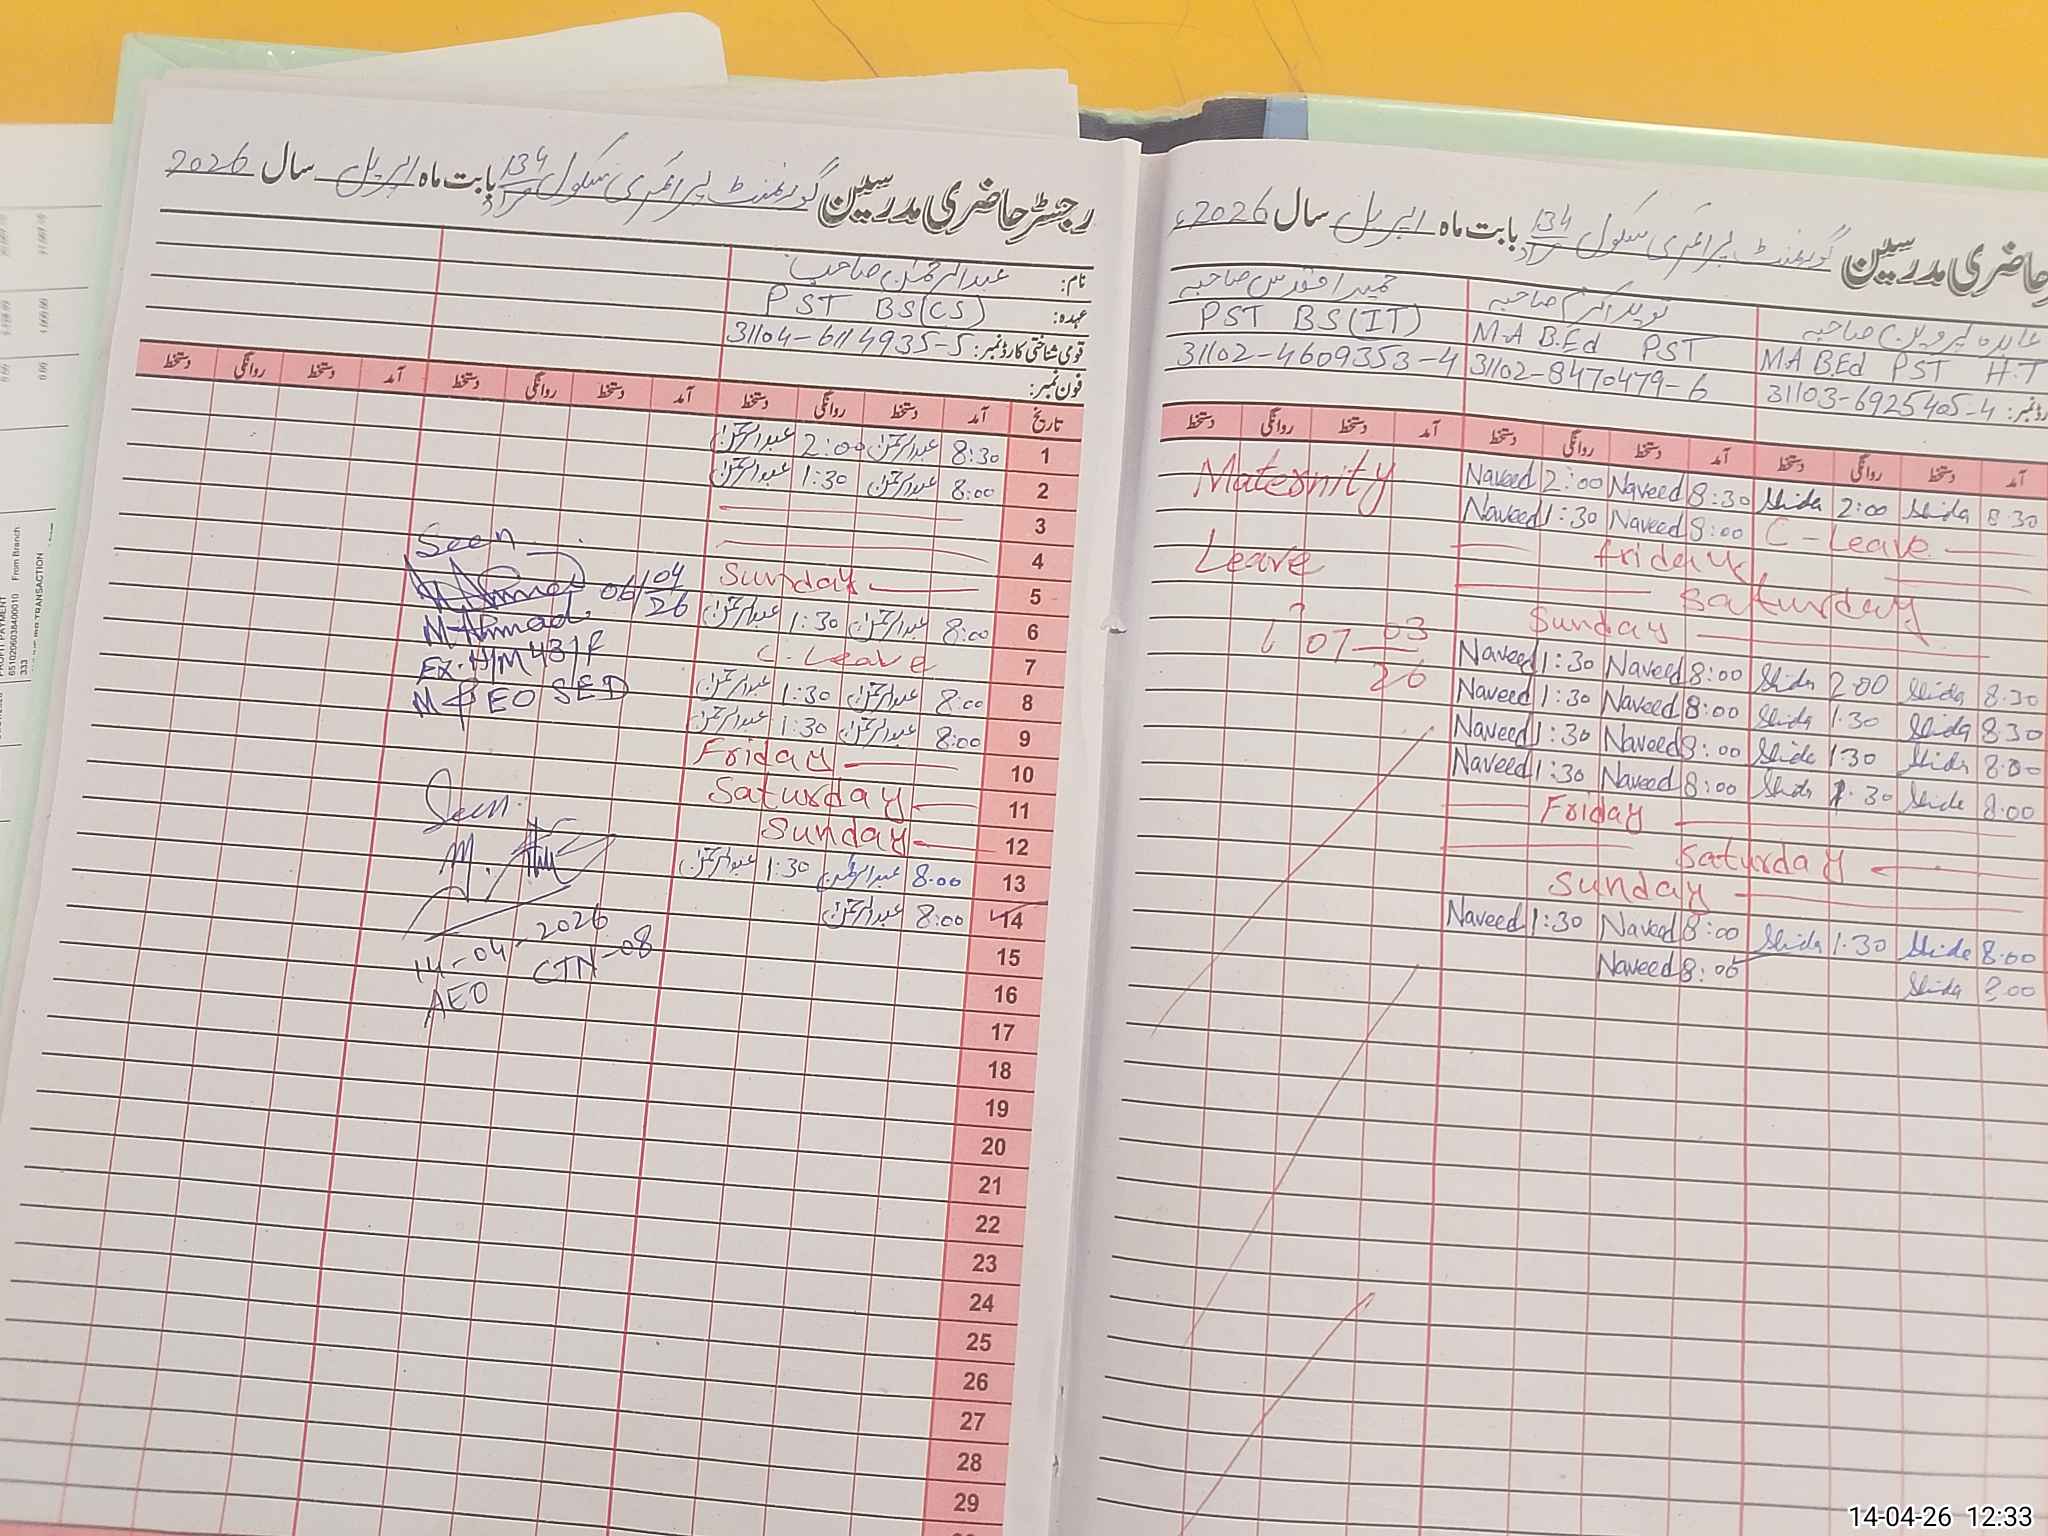 رجسٹر حاضری مدرسین گورنمنٹ پرائمری سکول 134 مراد بابت ماہ اپریل سال 2026
نام: عبدالرحمٰن صاحب
عہدہ: PST BS(CS)
قومی شناختی کارڈ نمبر: 31104-6114935-5
فون نمبر:
تاریخ آمد دستخط روانگی دستخط آمد دستخط روانگی دستخط آمد دستخط روانگی دستخط
1 8:30 عبدالرحمٰن 2:00 عبدالرحمٰن
2 8:00 عبدالرحمٰن 1:30 عبدالرحمٰن
3
4
5 Sunday
6 8:00 عبدالرحمٰن 1:30 عبدالرحمٰن
7 C-Leave
8 8:00 عبدالرحمٰن 1:30 عبدالرحمٰن
9 8:00 عبدالرحمٰن 1:30 عبدالرحمٰن
10 Friday
11 Saturday
12 Sunday
13 8:00 عبدالرحمٰن 1:30 عبدالرحمٰن
14 8:00 عبدالرحمٰن
15
16
17
18
19
20
21
22
23
24
25
26
27
28
29
Seen
06/04/26
M Ahmad
Ex. H/M 431 F
M EO SED
Seen
M.
14-04-2026
AEO CTN-08
حاضری مدرسین گورنمنٹ پرائمری سکول 134 مراد بابت ماہ اپریل سال 2026ء
صاحبہ نوید اکرم صاحبہ عابدہ پروین صاحبہ
PST BS(IT) M.A B.Ed PST M.A B.Ed PST H.T
31102-4609353-4 31102-8470479-6 31103-6925405-4
آمد دستخط روانگی دستخط آمد دستخط روانگی دستخط آمد دستخط روانگی دستخط
Maternity Naveed 2:00 Naveed 8:30 2:00 8:30
Naveed 1:30 Naveed 8:00 C-Leave
Leave Friday
Saturday
Sunday
07-03-26 Naveed 1:30 Naveed 8:00 2:00 8:30
Naveed 1:30 Naveed 8:00 1:30 8:30
Naveed 1:30 Naveed 8:00 1:30 8:00
Naveed 1:30 Naveed 8:00 1:30 8:00
Friday
Saturday
Sunday
Naveed 1:30 Naveed 8:00 1:30 8:00
Naveed 8:00 8:00
PROFIT PAYMENT
6510206038400010 From Branch
333
TRANSACTION
14-04-26 12:33